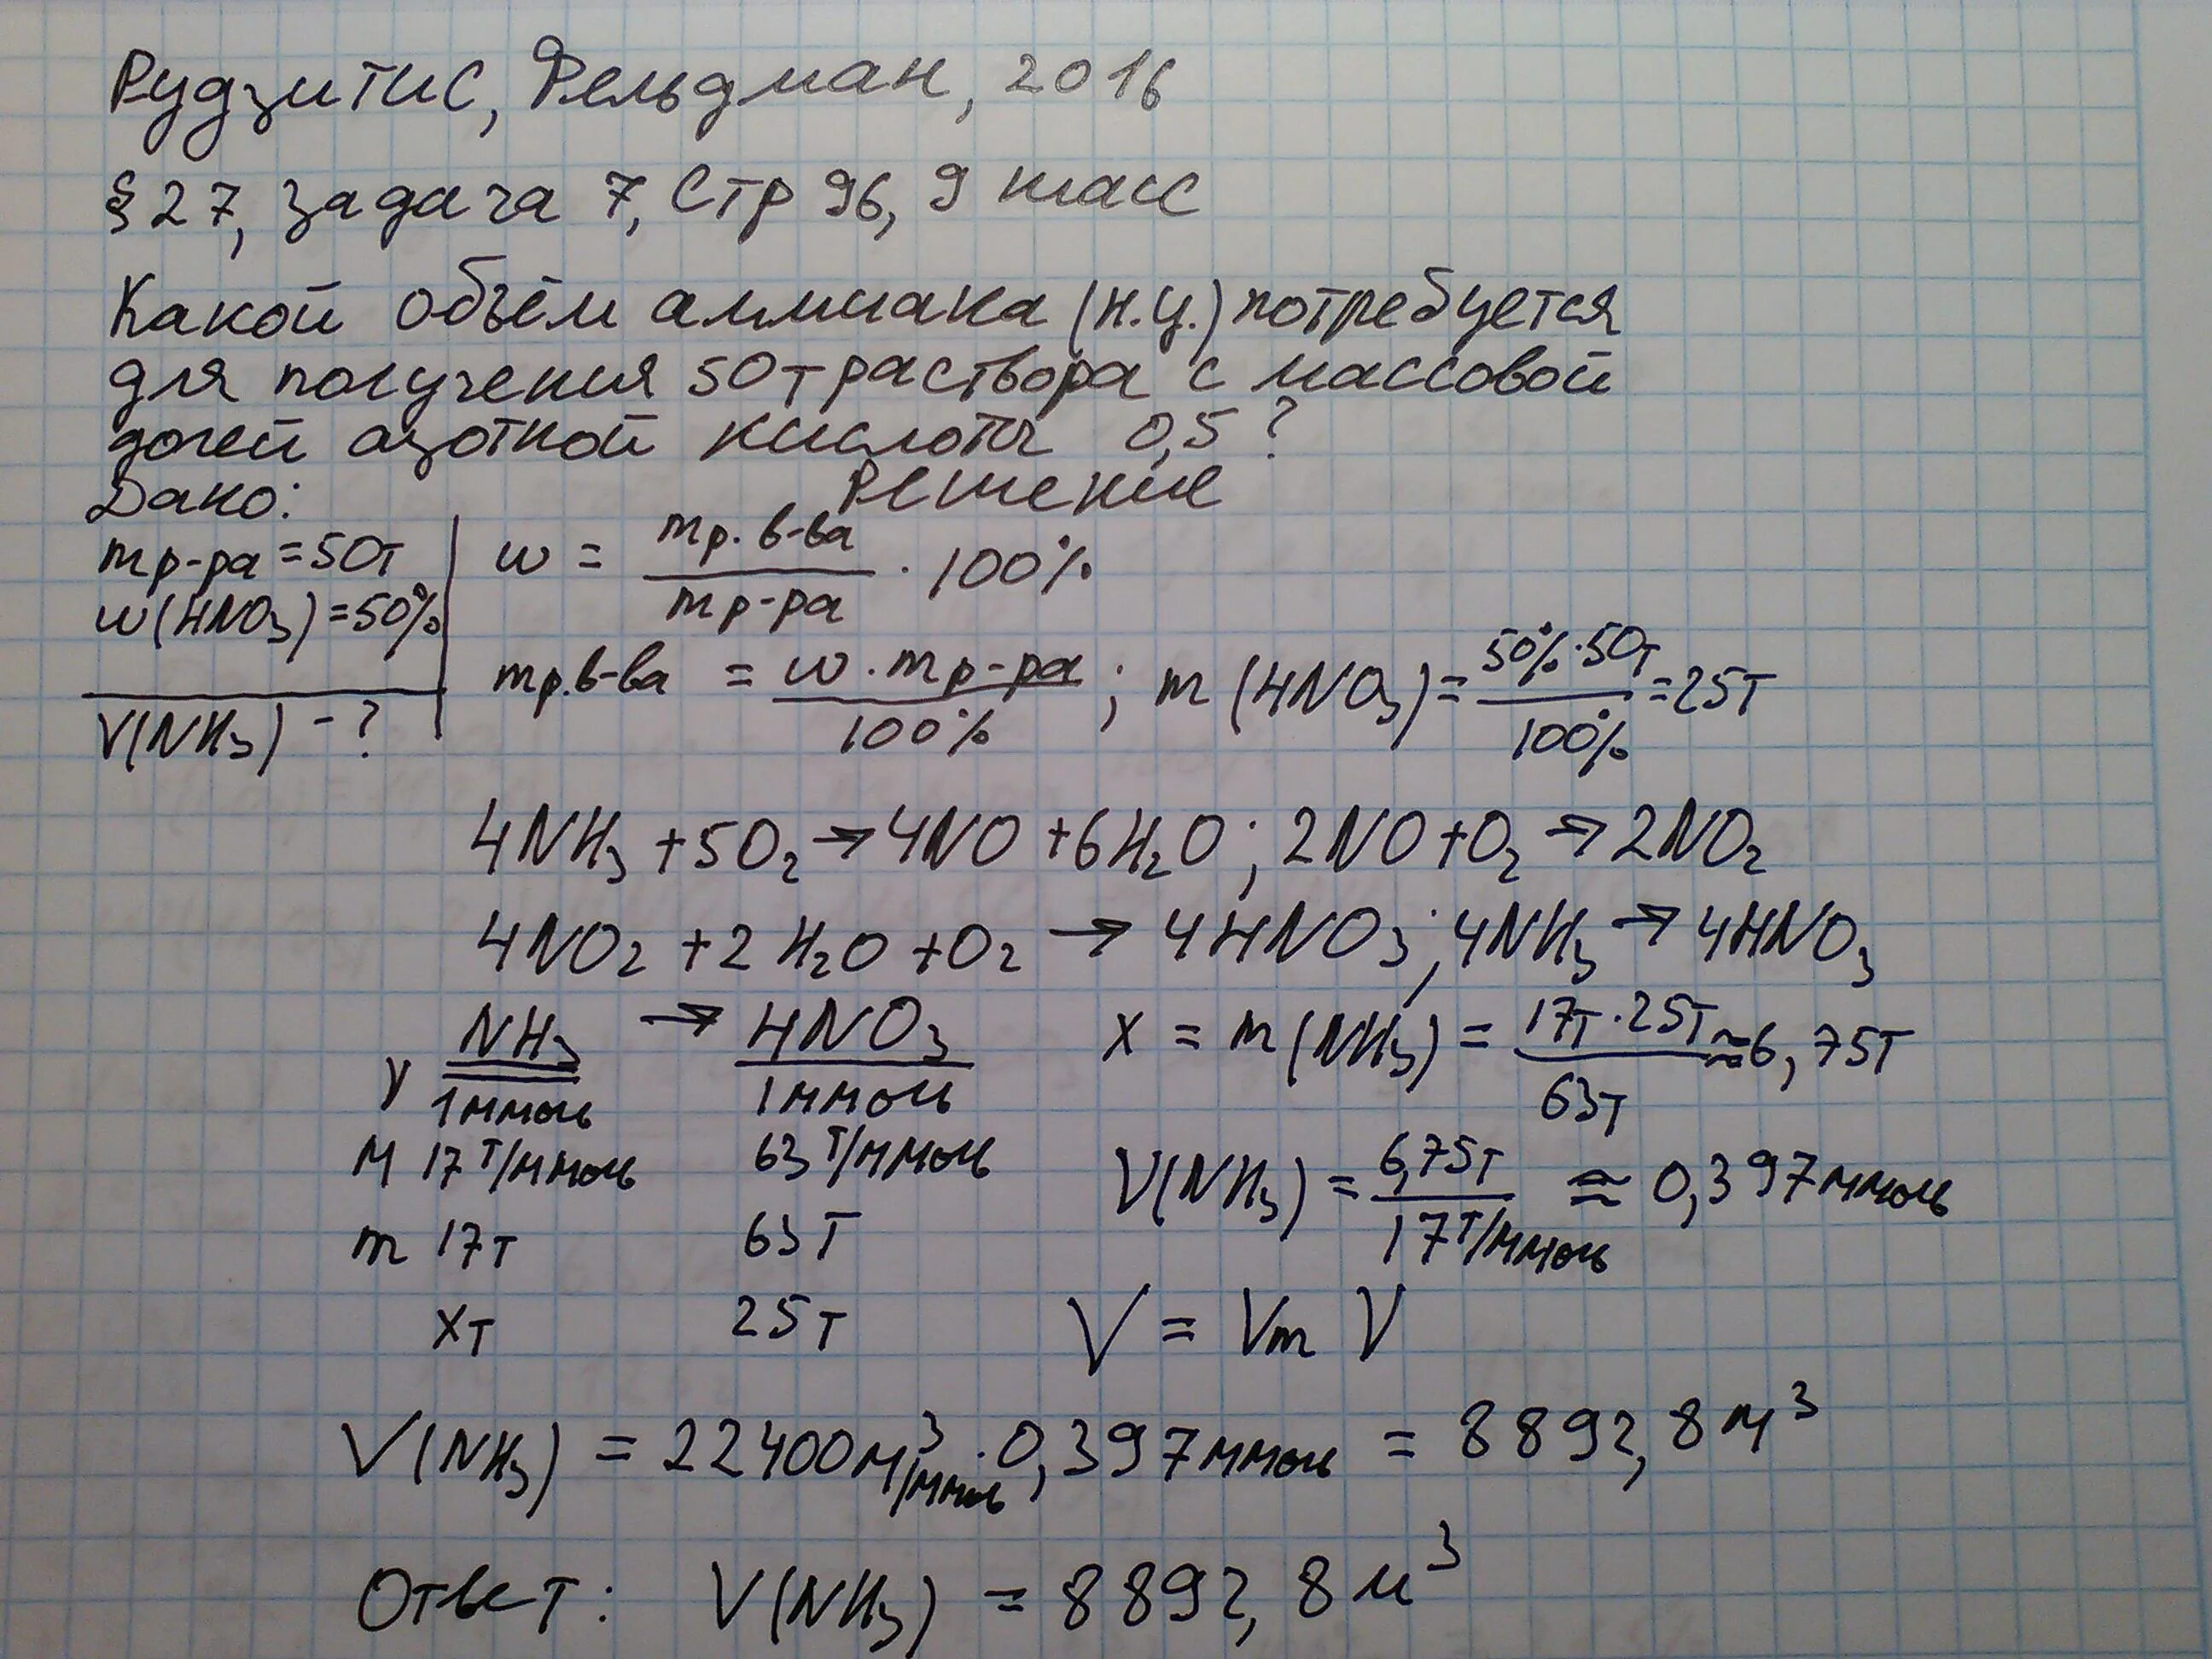 Рудзитис, Фельдман, 2016
§ 27, задача 7, Стр 96, 9 класс
Какой объём аммиака (н.у.) потребуется
для получения 50т раствора с массовой
долей азотной кислоты 0,5?
Дано: Решение
mр-ра = 50т
w(HNO₃) = 50%
V(NH₃) - ?
w = mр.в-ва / mр-ра · 100%
mр.в-ва = w · mр-ра / 100% ; m(HNO₃) = 50% · 50т / 100% = 25т
4NH₃ + 5O₂ → 4NO + 6H₂O; 2NO + O₂ → 2NO₂
4NO₂ + 2H₂O + O₂ → 4HNO₃; 4NH₃ → 4HNO₃
NH₃ → HNO₃
ν 1ммоль 1ммоль
M 17т/ммоль 63т/ммоль
m 17т 63т
xт 25т
x = m(NH₃) = 17т · 25т / 63т ≈ 6,75т
ν(NH₃) = 6,75т / 17т/ммоль ≈ 0,397ммоль
V = Vm ν
V(NH₃) = 22400м³/ммоль · 0,397ммоль = 8892,8м³
Ответ: V(NH₃) = 8892,8м³